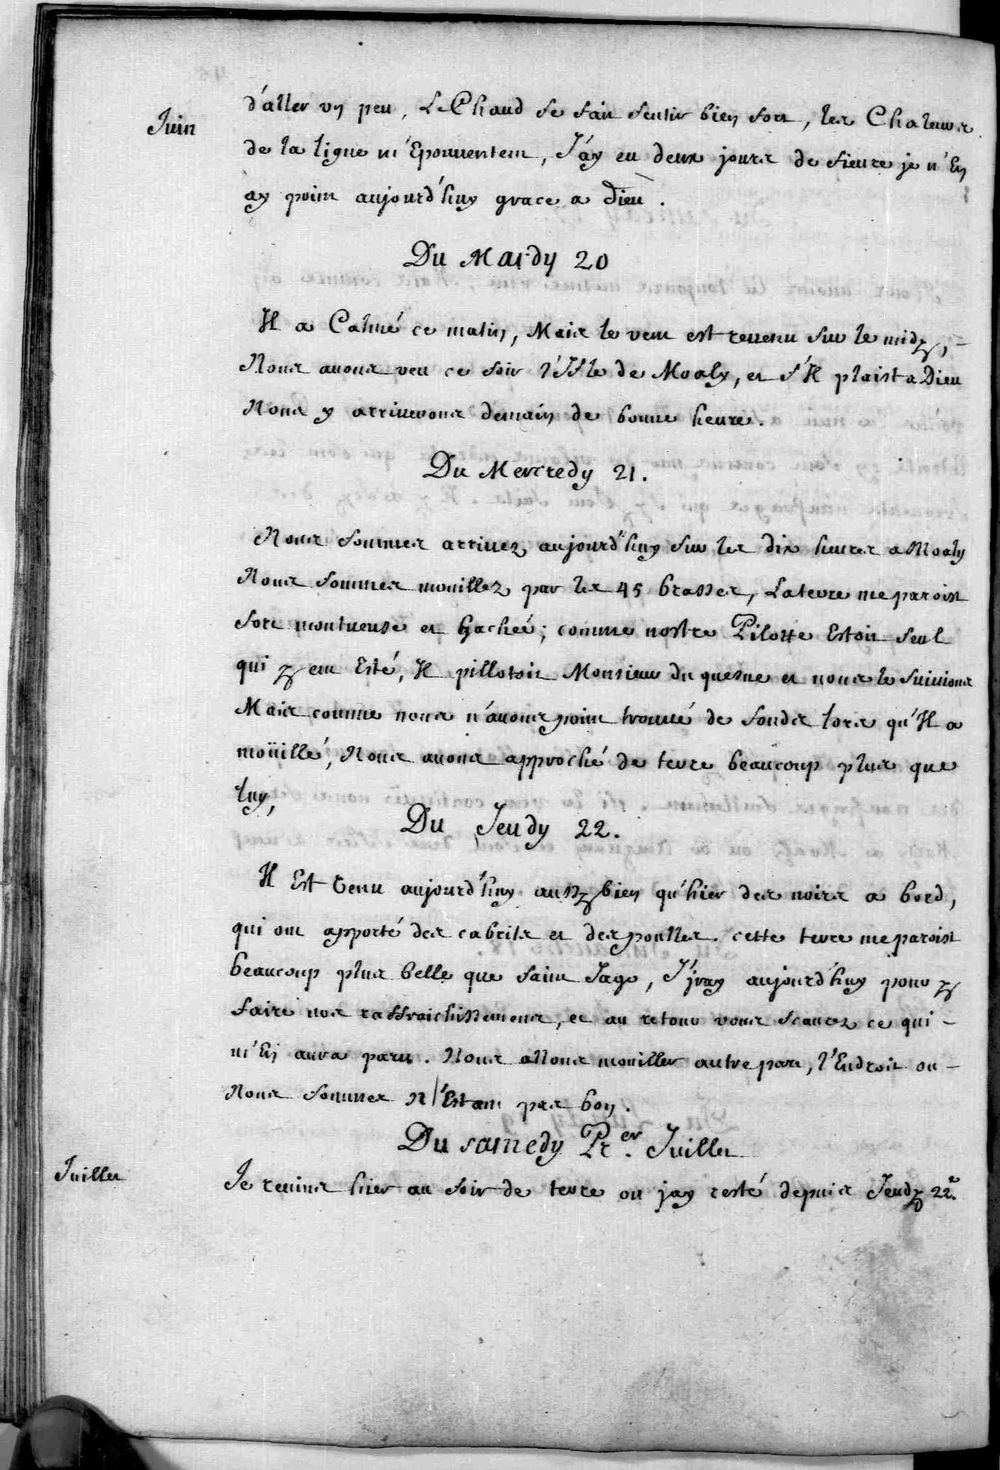 Juin
d'aller vn peu, Le Chaud se fait sentir bien fort, les Chaleurs
de la ligne m'Epouuentent, J'ay eu deux jours de fieure je n'En
ay point aujourd'huy grace a Dieu.
Du Mardy 20
Il a Calmé ce matin, Mais le vent est reuenu sur le midy, -
Nous auons veu ce soir l'Isle de Moaly, et s'Il plaist a Dieu
Nous y arriuerons demain de bonne heure.
Du Mercredy 21.
Nous sommes arriuez aujourd'huy sur les dix heures a Moaly
Nous sommes mouillez par les 45 brasses, La terre me paroist
fort montueuse et hachée; comme nostre Pilotte Estoit seul
qui y eut Esté, Il pillotoit Monsieur du quesne et nous le suiuions
Mais comme nous n'auons point trouué de fonds lors qu'Il a
moüillé, Nous auons approché de terre beaucoup plus que
luy,
Du Jeudy 22.
Il Est Venu aujourd'huy aussy bien qu'hier des noirs a bord,
qui ont apporté des cabrits et des poulles. cette terre me paroist
beaucoup plus belle que saint Jago, J'jray aujourd'huy pour y
faire nos raffraichissemens, et au retour vous scaurez ce qui -
m'En aura paru. Nous allons mouiller autre part, l'Endroit ou -
Nous sommes N'Estant pas bon.
Du samedy Pr.er Juillet
Juillet
Je reuins hier au soir de terre ou jay resté depuis Jeudy 22.e